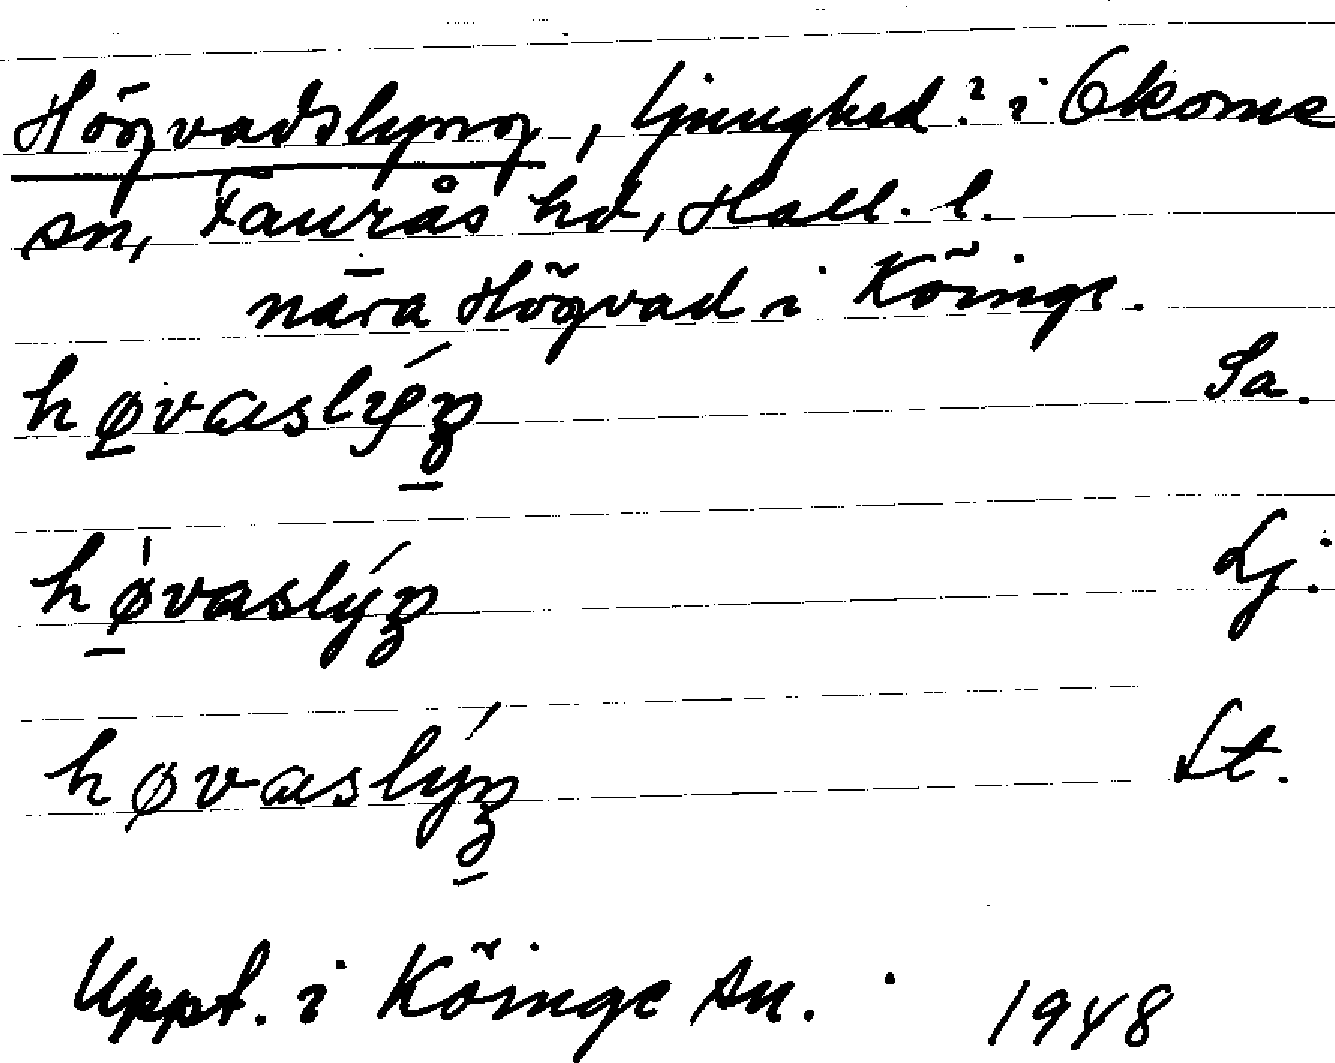 Högvadslyng, ljunghed? i Okome
sn, Faurås hd, Hall. l.
nära Högvad i Köinge.
hø̱vaslýŋ̱ Sa.
hø̱vaslýŋ Lj.
høvaslýŋ̱ St.
Uppt. i Köinge sn. 1948